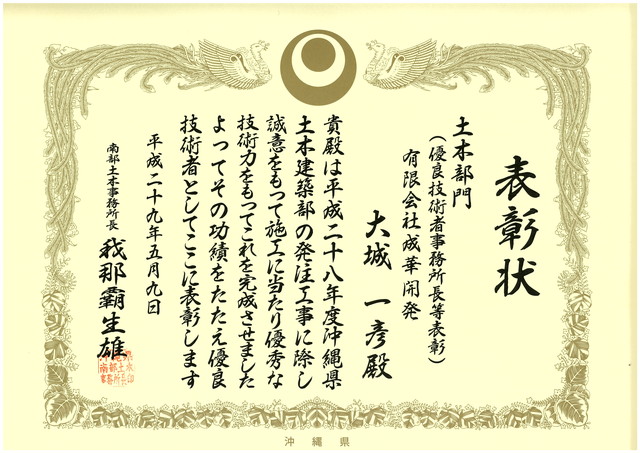 表彰状
土木部門
（優良技術者事務所長等表彰）
有限会社成華開発
大城一彦殿
貴殿は平成二十八年度沖縄県
土木建築部の発注工事に際し
誠意をもって施工に当たり優秀な
技術力をもってこれを完成させました
よってその功績をたたえ優良
技術者としてここに表彰します
平成二十九年五月九日
南部土木事務所長
我那覇生雄
沖縄県